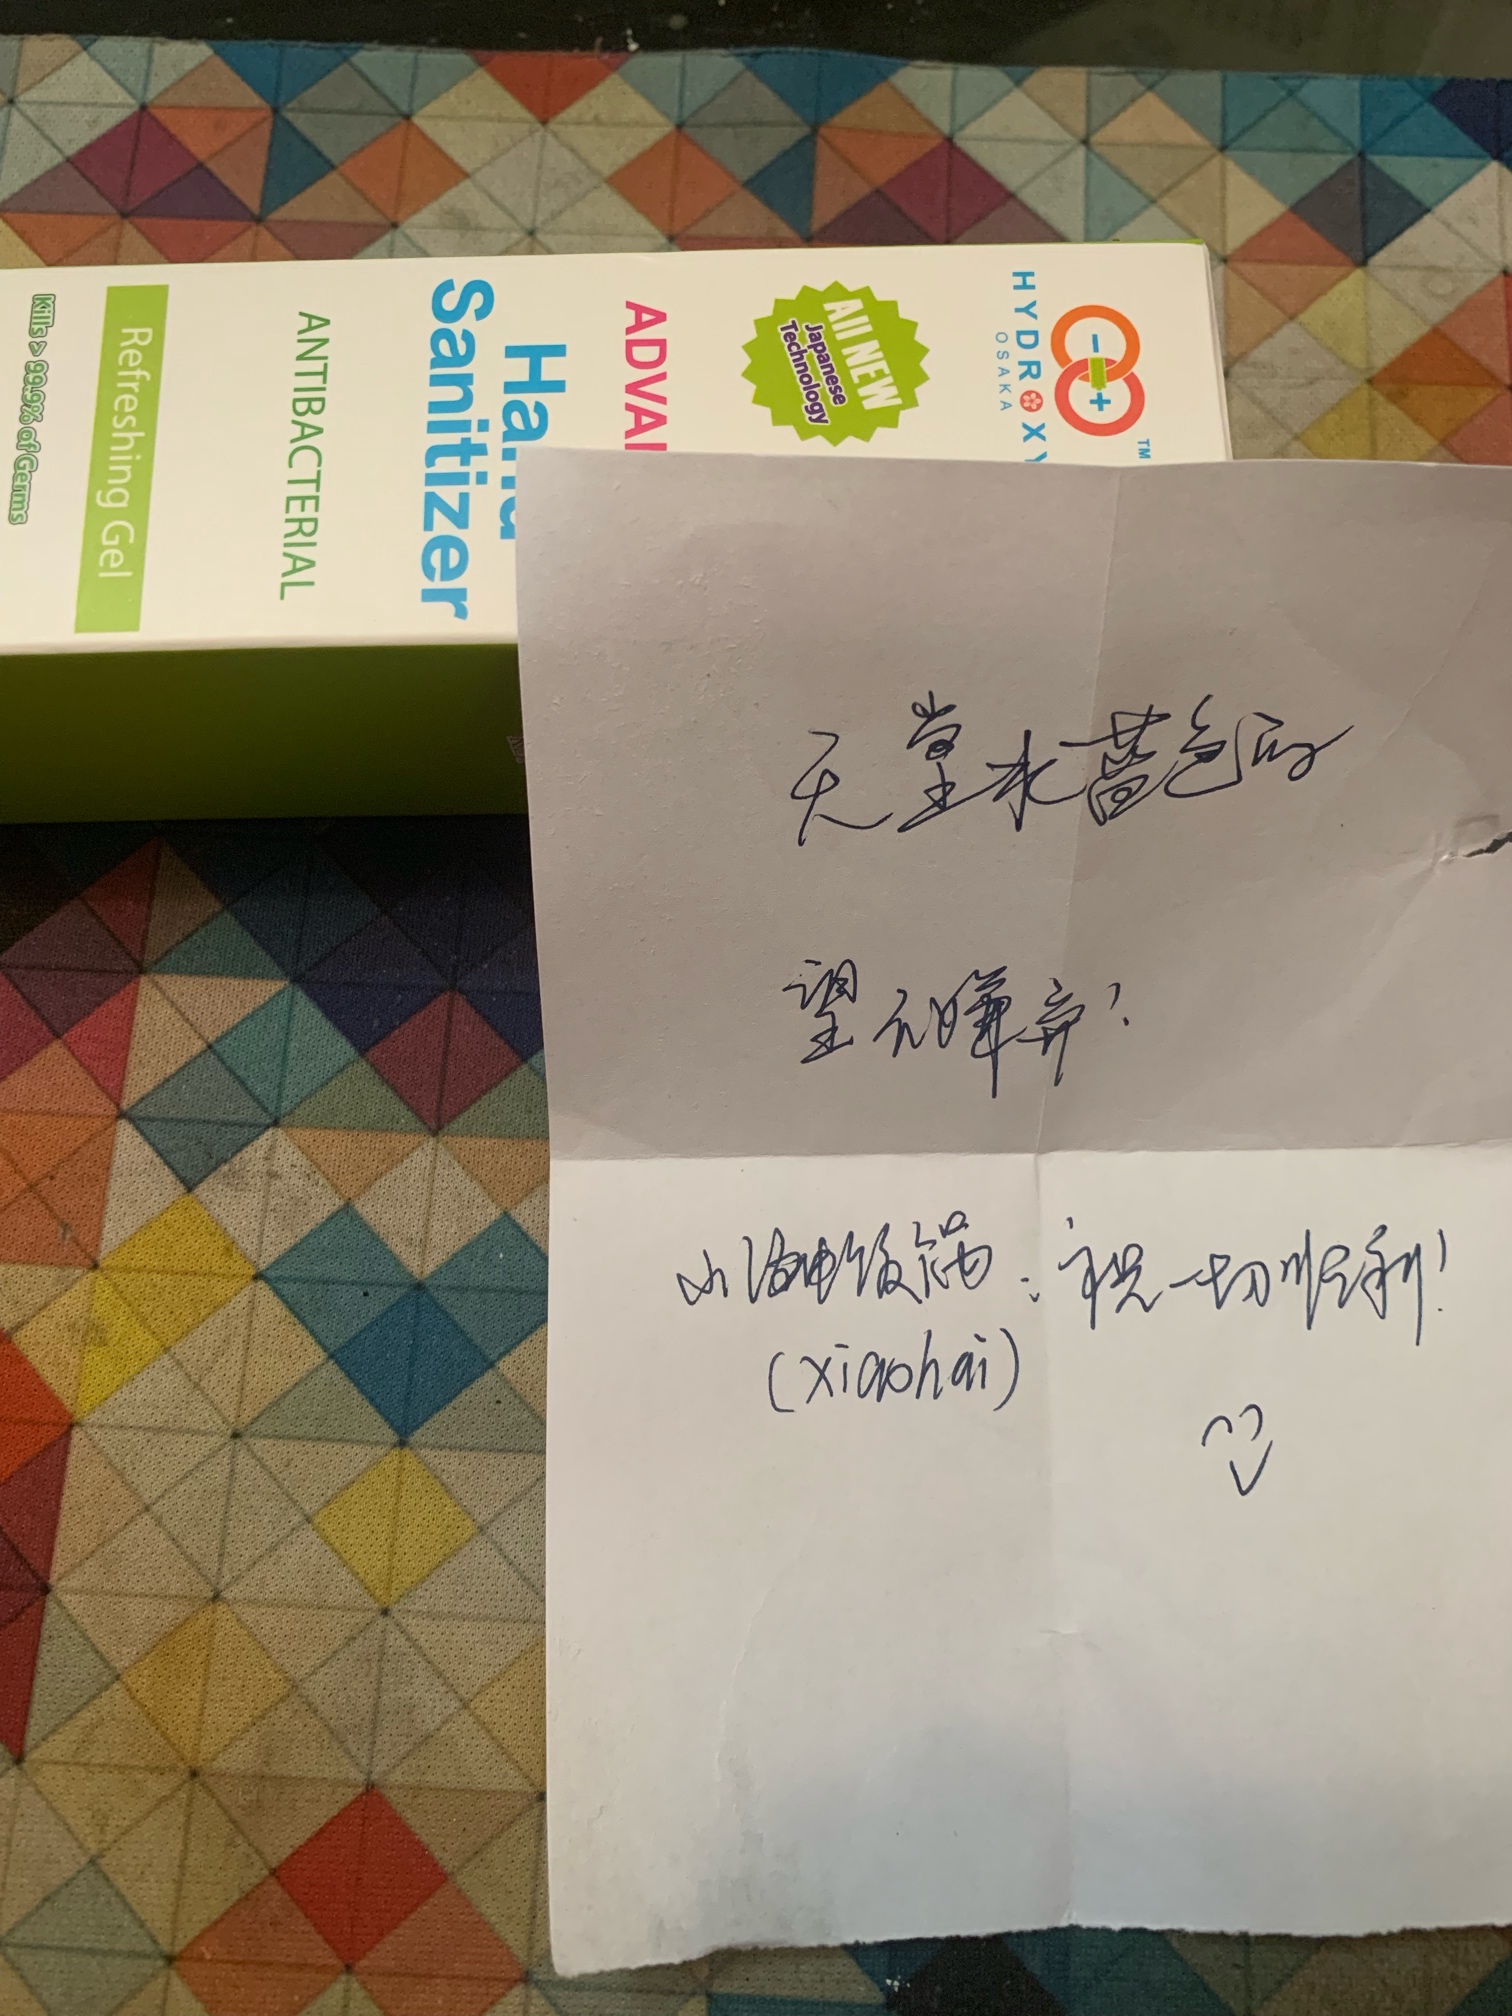 HYDROXY
OSAKA
TM
All NEW
Japanese
Technology
ADVA
Hand
Sanitizer
ANTIBACTERIAL
Refreshing Gel
Kills > 99.9% of Germs
天堂 色的
望 弃!
小海电饭锅:祝一切顺利!
(xiaohai)